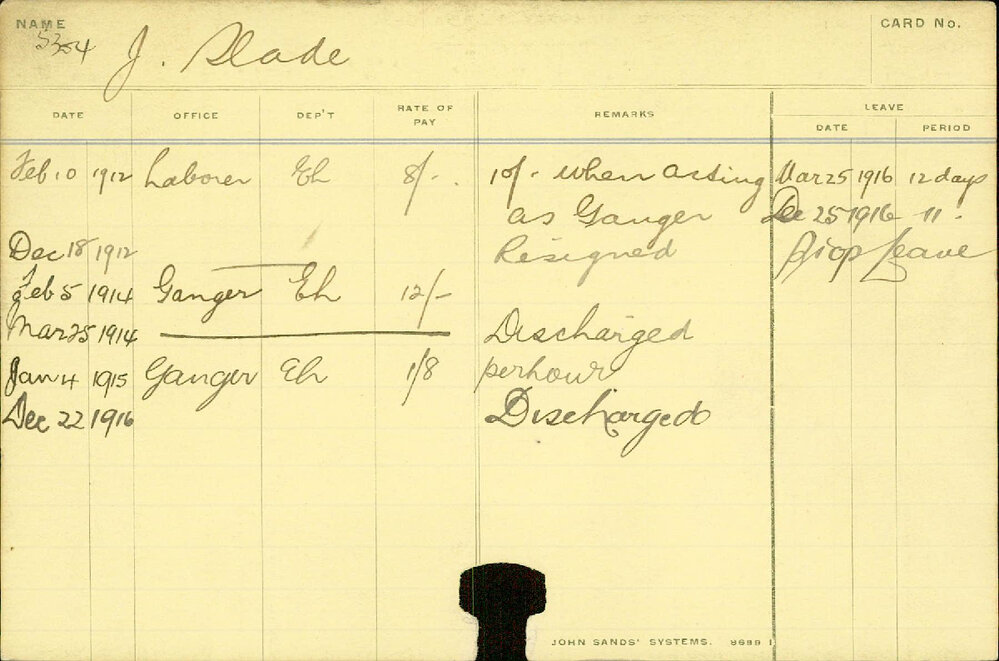 NAME
CARD No.
5354 J. Slade
DATE OFFICE DEP'T RATE OF PAY REMARKS LEAVE
DATE PERIOD
Feb 10 1912 Laborer Eh 8/- 10/- when acting Mar 25 1916 12 days
as Ganger Dec 25 1916 11 "
Dec 18 1912 Resigned Prop Leave
Feb 5 1914 Ganger Eh 12/-
Mar 25 1914 Discharged
Jan 4 1915 Ganger Eh 1/8 per hour
Dec 22 1916 Discharged
JOHN SANDS' SYSTEMS. 8699